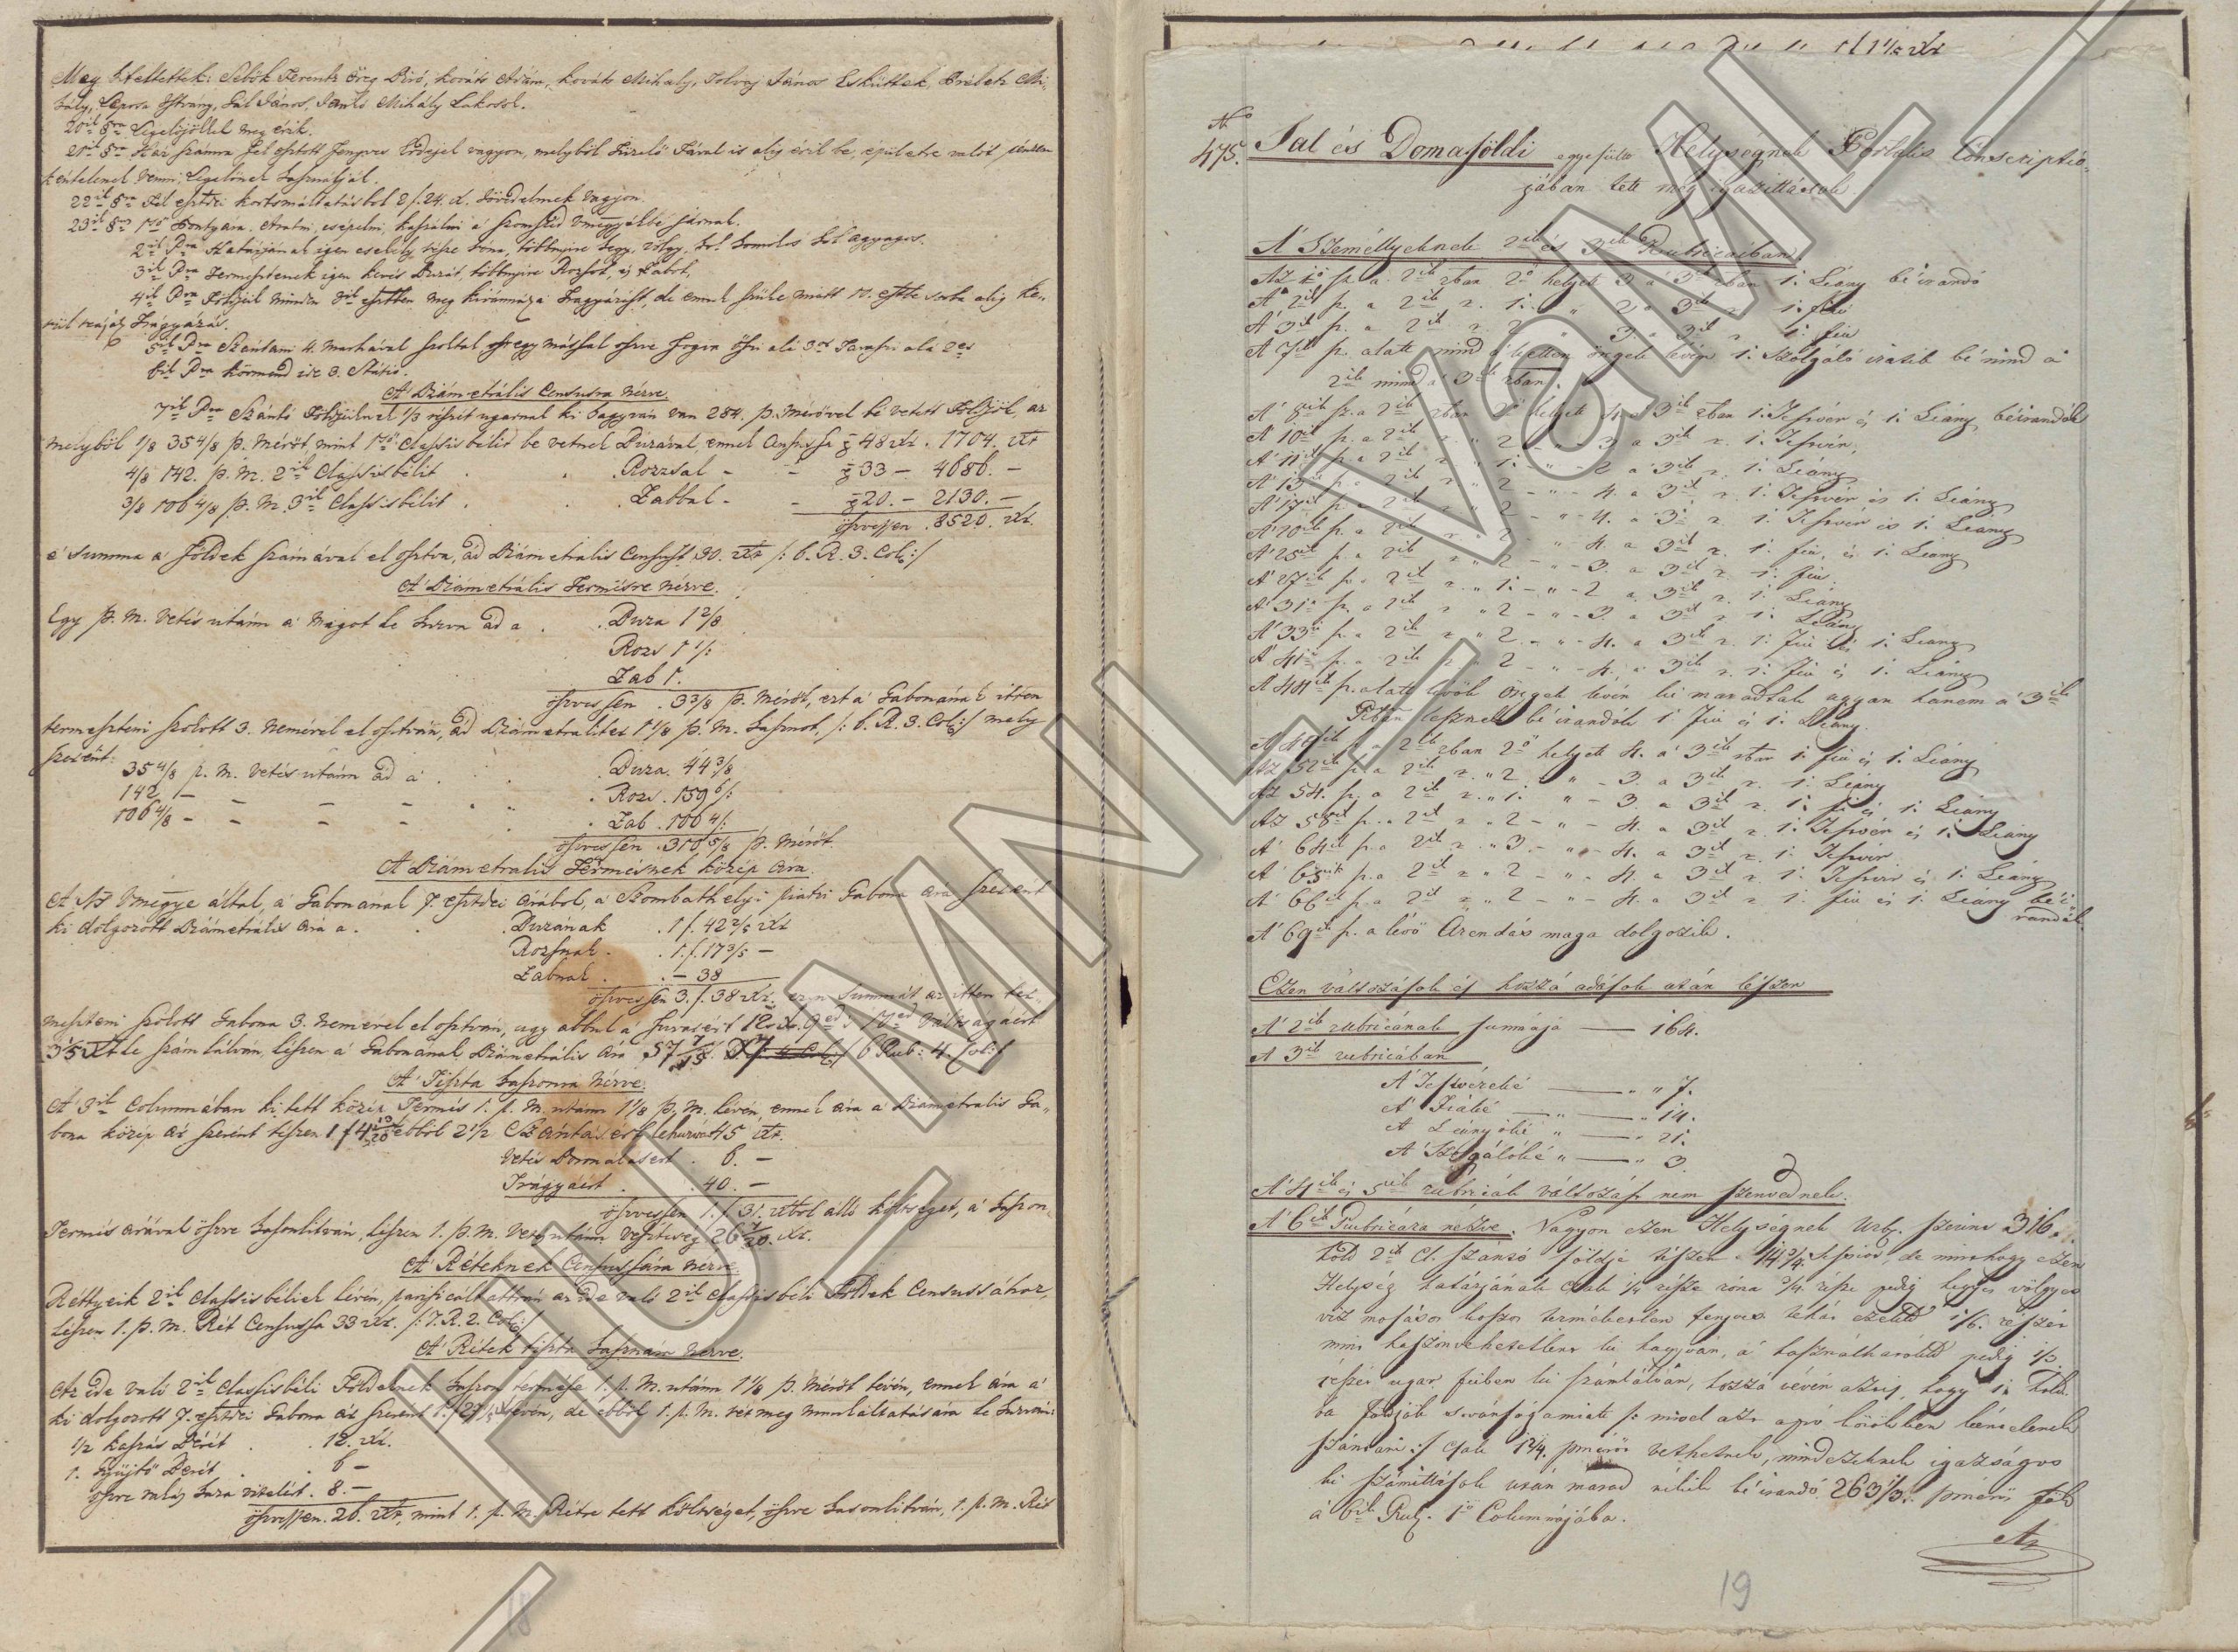 Meg hitteltettek: Sebők Ferentz Öreg Biró, Kováts Ádám, Kováts Mihály, Tolvaj János Esküttek,
István, Gál János, Jankó Mihály Lakosok.
20ik §ra Legelőjökkel meg érik.
21ik §ra Ház számra fel osztott Fenyves Erdejek vagyon, melyből Tüzelő Fával is alig érik be, epületre valót pénzen
kéntelenek venni, Legelőnek használják.
22ik §ra Fél esztei kortsmáltatásbol 2 f. 24. x. Jövedelmek vagyon.
23ik §ra 1ső Pontyára. Aratni, csépelni, kaszálni a szomszéd Vmegyékbe járnak.
2ik Pra Határjának igen csekély része róna, többnyire hegy, völgy, hol homokos hol agyagos.
3ik Pra Termesztenek igen kevés Buzát, többnyire Rozsot, és Zabot.
4ik Pra Földjeik minden 3ik esztben meg kivánnák a Trágyázást, de ennek szüke miatt 10. esztbe sorba alig ke-
rül reájok Trágyázás.
5ik Pra Szántani 4. marhával szoktak
6ik Pra Körmend ide 3. Státió.
A' Diámetrális Censusra Nézve.
7ik Pra Szántó Földjeiknek 1/3 részét ugarnak ki hagyván van 284. p. mérővel bé vetett Földjök, az
melyből 1/8 35 4/8 p. Mérőt, mint 1ső Classisbélit be vetnek Búzával, ennek Censussa 48 xr. 1704. xr
4/8 142. p. M. 2ik Classisbélit . . Rozzsal - - 33 - 4686. -
3/8 106 4/8 p. M. 3ik Classisbélit . . Zabbal - - 20. - 2130. -
öszvessen . 8520. xr.
e' Summa a' földek számával el osztva, ád Diámetrális Censust 30. xr /: 6. R. 3. Col:/
A' Diámetrális Termésre Nézve.
Egy p. M. Vetés utánn a' Magot le húzva ád a . . Buza 1 2/8
Rozs 1 1/:
Zab 1.
öszvessen . 3 3/8 p. Mérőt, ezt a' Gabonának itten
termeszteni szokott 3. nemével el osztván, ád Diámetraliter 1 1/8 p. M. hasznot, /: 6. R. 3. Col:/ mely
szerént:
35 4/8 p. M. Vetés utánn ád a' . . Buza. 44 3/8
142 - - - - . . Rozs . 159 6/:
106 4/8 - - - - . . Zab . 106 4/:
öszvessen . 310 5/8 p. Mérőt.
A' Diámetralis Termésnek közép ára.
A' Ns Vmegye által, a' Gabonának 7. esztei árából, a' Szombathelyi piatzi Gabona ára szerént
ki dolgozott Diámetrális ára a . . Buzának . 1 f. 42 2/5 xr
Rozsnak . . 1. f. 17 3/5 -
Zabnak . . - 38
öszvessen 3. f. 38 xr. ezen Summát az itten ter-
meszteni szokott Gabona 3. nemével el osztván, ugy abbul a'
le számlálván, lészen a' Gabonának Diámetrális ára 57 6 Rub: 4. Col:/
A' Tiszta haszonra Nézve.
A' 3ik Columnában ki tett közép Termés 1. p. M. utánn 1 1/8 p. M. lévén, ennek ára a' Diametralis Ga-
bona közép ár szerént lészen ebből 2 1/2 Szántásért lehuzván 45 xr.
Vetés Boronálásért . 6. -
Trágyáért . . 40. -
öszvessen 1. f. 31. xrbol álló költséget, a' haszon
Termés árával öszve hasonlitván, lészen 1. p. M. Vetés utánn veszteség 26 xr.
A' Réteknek Censussára Nézve.
Réttyeik 2ik Classisbéliek lévén, parificáltattván az ide való 2ik Classisbéli Földek Censussához,
lészen 1. p. M. Rét Censussa 33 xr. /: 7. R. 2. Col:/
A' Rétek tiszta hasznára Nézve.
Az ide való 2ik Classisbéli Földeknek haszon termése 1. p. M. utánn 1 1/8 p. Mérőt lévén, ennek ára a'
ki dolgozott 7. esztei Gabona ár szerent lévén, de ebből 1. p. M. rét meg munkáltatására le huzván:
1/2 kaszás Bérét . . 12. xr.
1. Gyüjtő Bérét . . 6 -
öszve rakás haza vitelét . 8. -
öszvessen. 26. xr, mint 1. p. M. Rétre tett költséget, öszve hasonlitván, 1. p. M. Rét
No
475. Fal és Domaföldi egyesültt Helységnek Portalis Conscriptio-
jában tett meg igazittások.
A' Személlyeknek 2ik és 3ik Rubricáiban
Az 1ő sz. a 2ik rban 2ő helyett 3 a 3ik rban 1. Leány béirandó
A' 2ik sz. a 2ik r. 1. " 2 a 3ik r. 1. fiú
A' 3ik sz. a 2ik r. 2 " 3. a 3ik r. 1. fiú
A' 7ik sz. alatt mind a ketten öregek lévén 1. Szolgáló iratik bé mind a'
2ik mind a' 3ik rban.
A' 8ik sz. a 2ik rban 2ő helyett 4. a 3ik rban 1. Testvér és 1. Leány béirandók
A' 10ik sz. a 2ik r. " 2 - " - 3 a 3ik r. 1. Testvér,
A' 11ik sz. a 2ik r. " 1. - " - 2 a 3ik r. 1. Leány
A' 13ik sz. a 2ik r. " 2 - " - 4. a 3ik r. 1. Testvér és 1. Leány
A' 17ik sz. a 2ik r. " 2 - " - 4. a 3ik r. 1. Testvér és 1. Leany
A' 20ik sz. a 2ik r. " 2 - " - 4. a 3ik r. 1. fiú, és 1. Leany
A' 25ik sz. a 2ik r. " 2 - " - 3. a 3ik r. 1. fiú.
A' 27ik sz. a 2ik r. " 1. - " - 2 a 3ik r. 1. Leány
A' 31ő sz. a 2ik r. " 2 - " - 3. a 3ik r. 1. Leány
A' 33ik sz. a 2ik r. " 2. - " - 4. a 3ik r. 1. Fiú és 1. Leany
A' 41ő sz. a 2ik r. " 2 - " - 4. a 3ik r. 1. Fiú és 1. Leány
A' 44ik sz. alatt lévők öregek lévén ki maradtak ugyan hanem a' 3ik
Rban lesznek bé irandók 1 Fiú és 1. Leány.
A' 46ik sz. a 2ik rban 2ő helyett 4. a' 3ik rban 1. fiú és 1. Leány
Az 52ik sz. a 2ik r. " 2 " - 3. a 3ik r. 1. Leány
Az 54. sz. a 2ik r. " 1. " - 3. a 3ik r. 1. fi és 1. Leány
Az 58ik sz. a 2ik r. " 2 - " - 4. a 3ik r. 1. Testvér és 1. Leány
A' 64ik sz. a 2ik r. " 3. - " - 4. a 3ik r. 1. Testvér.
A' 65ik sz. a 2ik r. " 2 - " - 4. a 3ik r. 1. Testvér és 1. Leány
A' 66ik sz. a 2ik r. " 2 - " - 4. a 3ik r. 1. fiú és 1. Leány béi-
randók.
A' 69ik sz. a lévő Arendás maga dolgozik.
Ezen változások és hozzá adások után lészen
A' 2ik rubricának summája — 164.
A' 3ik rubricában
A' Testvéreké — " " 7.
A' Fiaké — " — 14.
A' Leányoké " — " 21.
A' Szolgálóké " — " 3.
A' 4ik és 5ik rubricák változást nem szenvednek.
A' 6ik Rubricára nézve. Vagyon ezen Helységnek Urb. szerint 316.
hold 2ik Cl. szántó földje tészen 14 3/4 Sessiót, de minthogy ezen
Helység határjának csak 1/4 része róna 3/4 része pedig hegyes völgyes
viz mosásos kopár terméketlen fenyves tehát ezekbő 1/6. részét
mint haszonvehetetlent ki hagyván, a' használhatókbó pedig 1/3
részét ugar fejében ki számlálván, hozzá vévén aztis, hogy 1. hold-
ba földjök soványsága miatt /: mivel azt apró körökben kéntelenek
szántani :/ csak 1 2/4. pmérőt vethetnek, mind ezeknek igazságos
ki számittások után marad nékik bé irandó 263 1/3. pmérős föld
a' 6ik Rub. 1ő Columnájába.
Az
19
HU MNL VaML